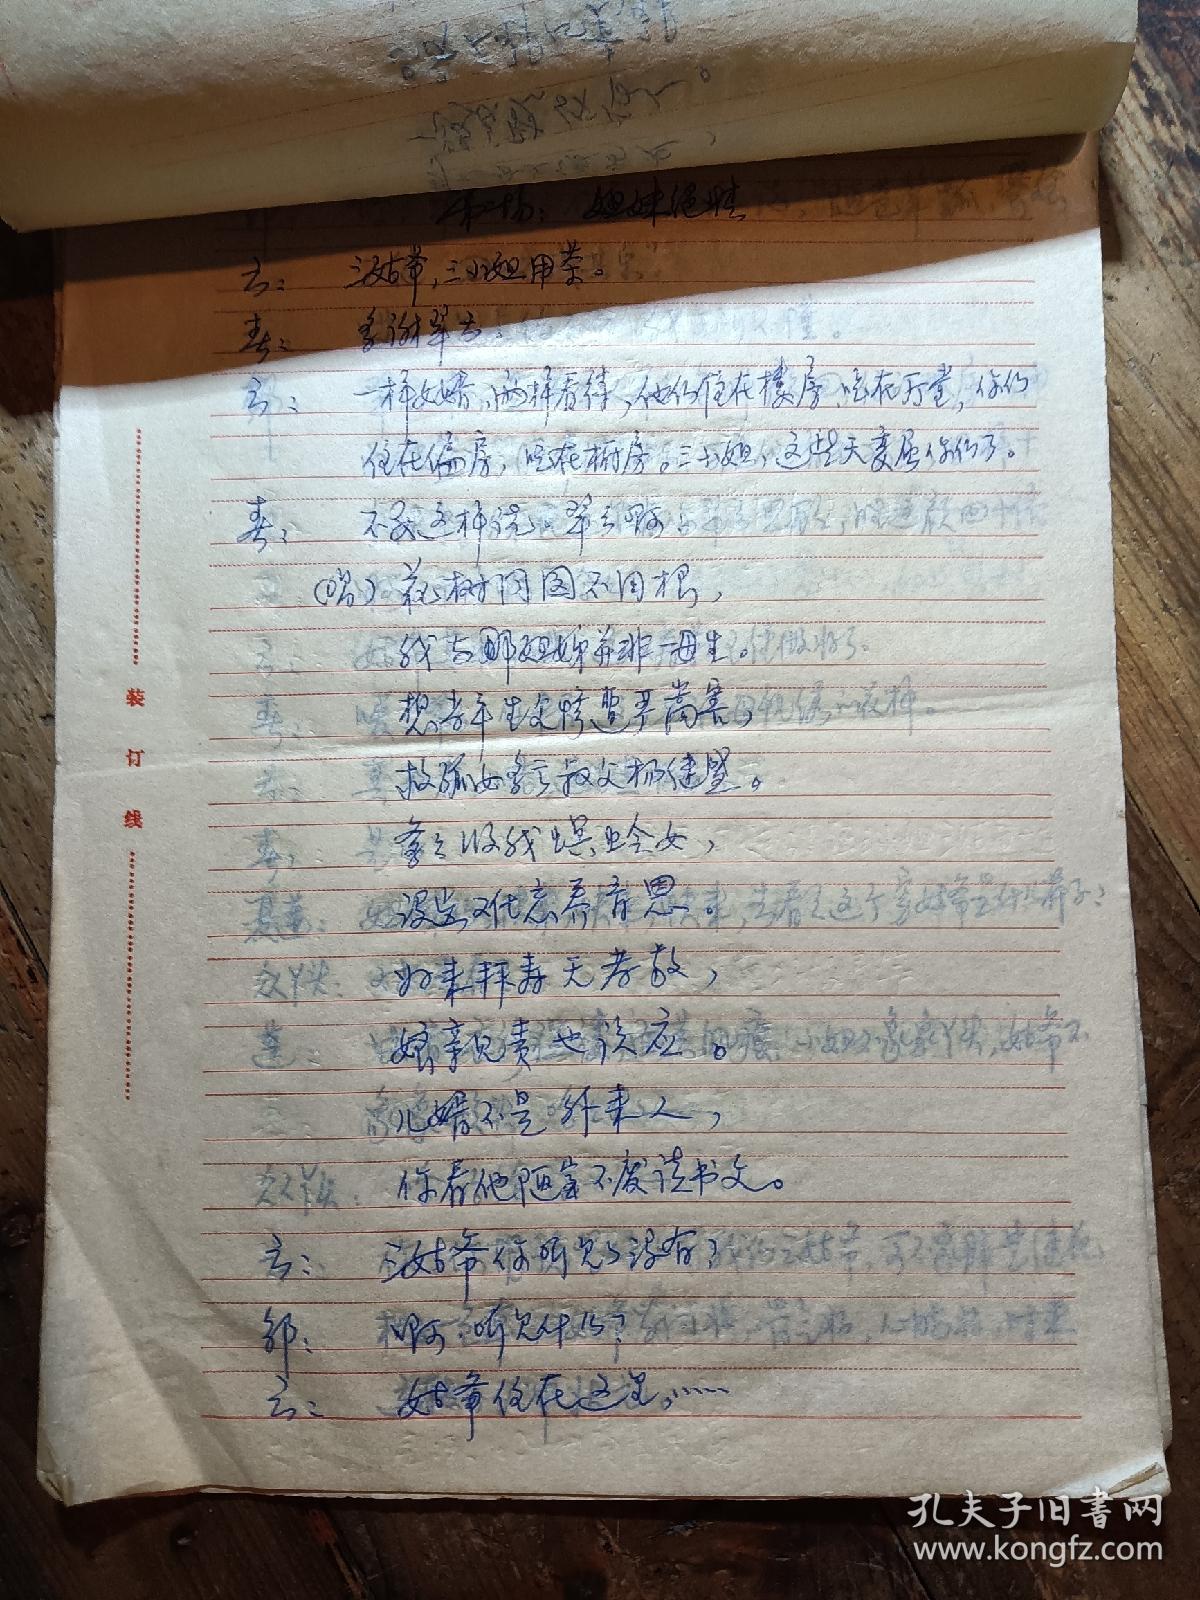 第二场：姐妹绝情
云：三姑爷，三小姐用茶。
春：多谢翠云。
云：一样女婿，两样看待，他们住在楼房，吃在厅堂，你们
住在偏房，吃在橱房。三小姐，这些天委屈你们了。
春：不要这样说，翠云啊
（唱）花树同园不同根，
我与那姐妹并非一母生。
想当年生父惨遭严嵩害，
救孤女多亏叔父杨继盛。
爹爹收我螟蛉女，
没齿不忘养育恩。
如来拜寿无孝敬，
娘亲见责也该应。
儿婿不是外来人，
你看他陋室不废读书文。
云：三姑爷你听见了没有？
邹：啊，听见什么？
云：姑爷住在这里，……
装
订
线
孔夫子旧书网
www.kongfz.com